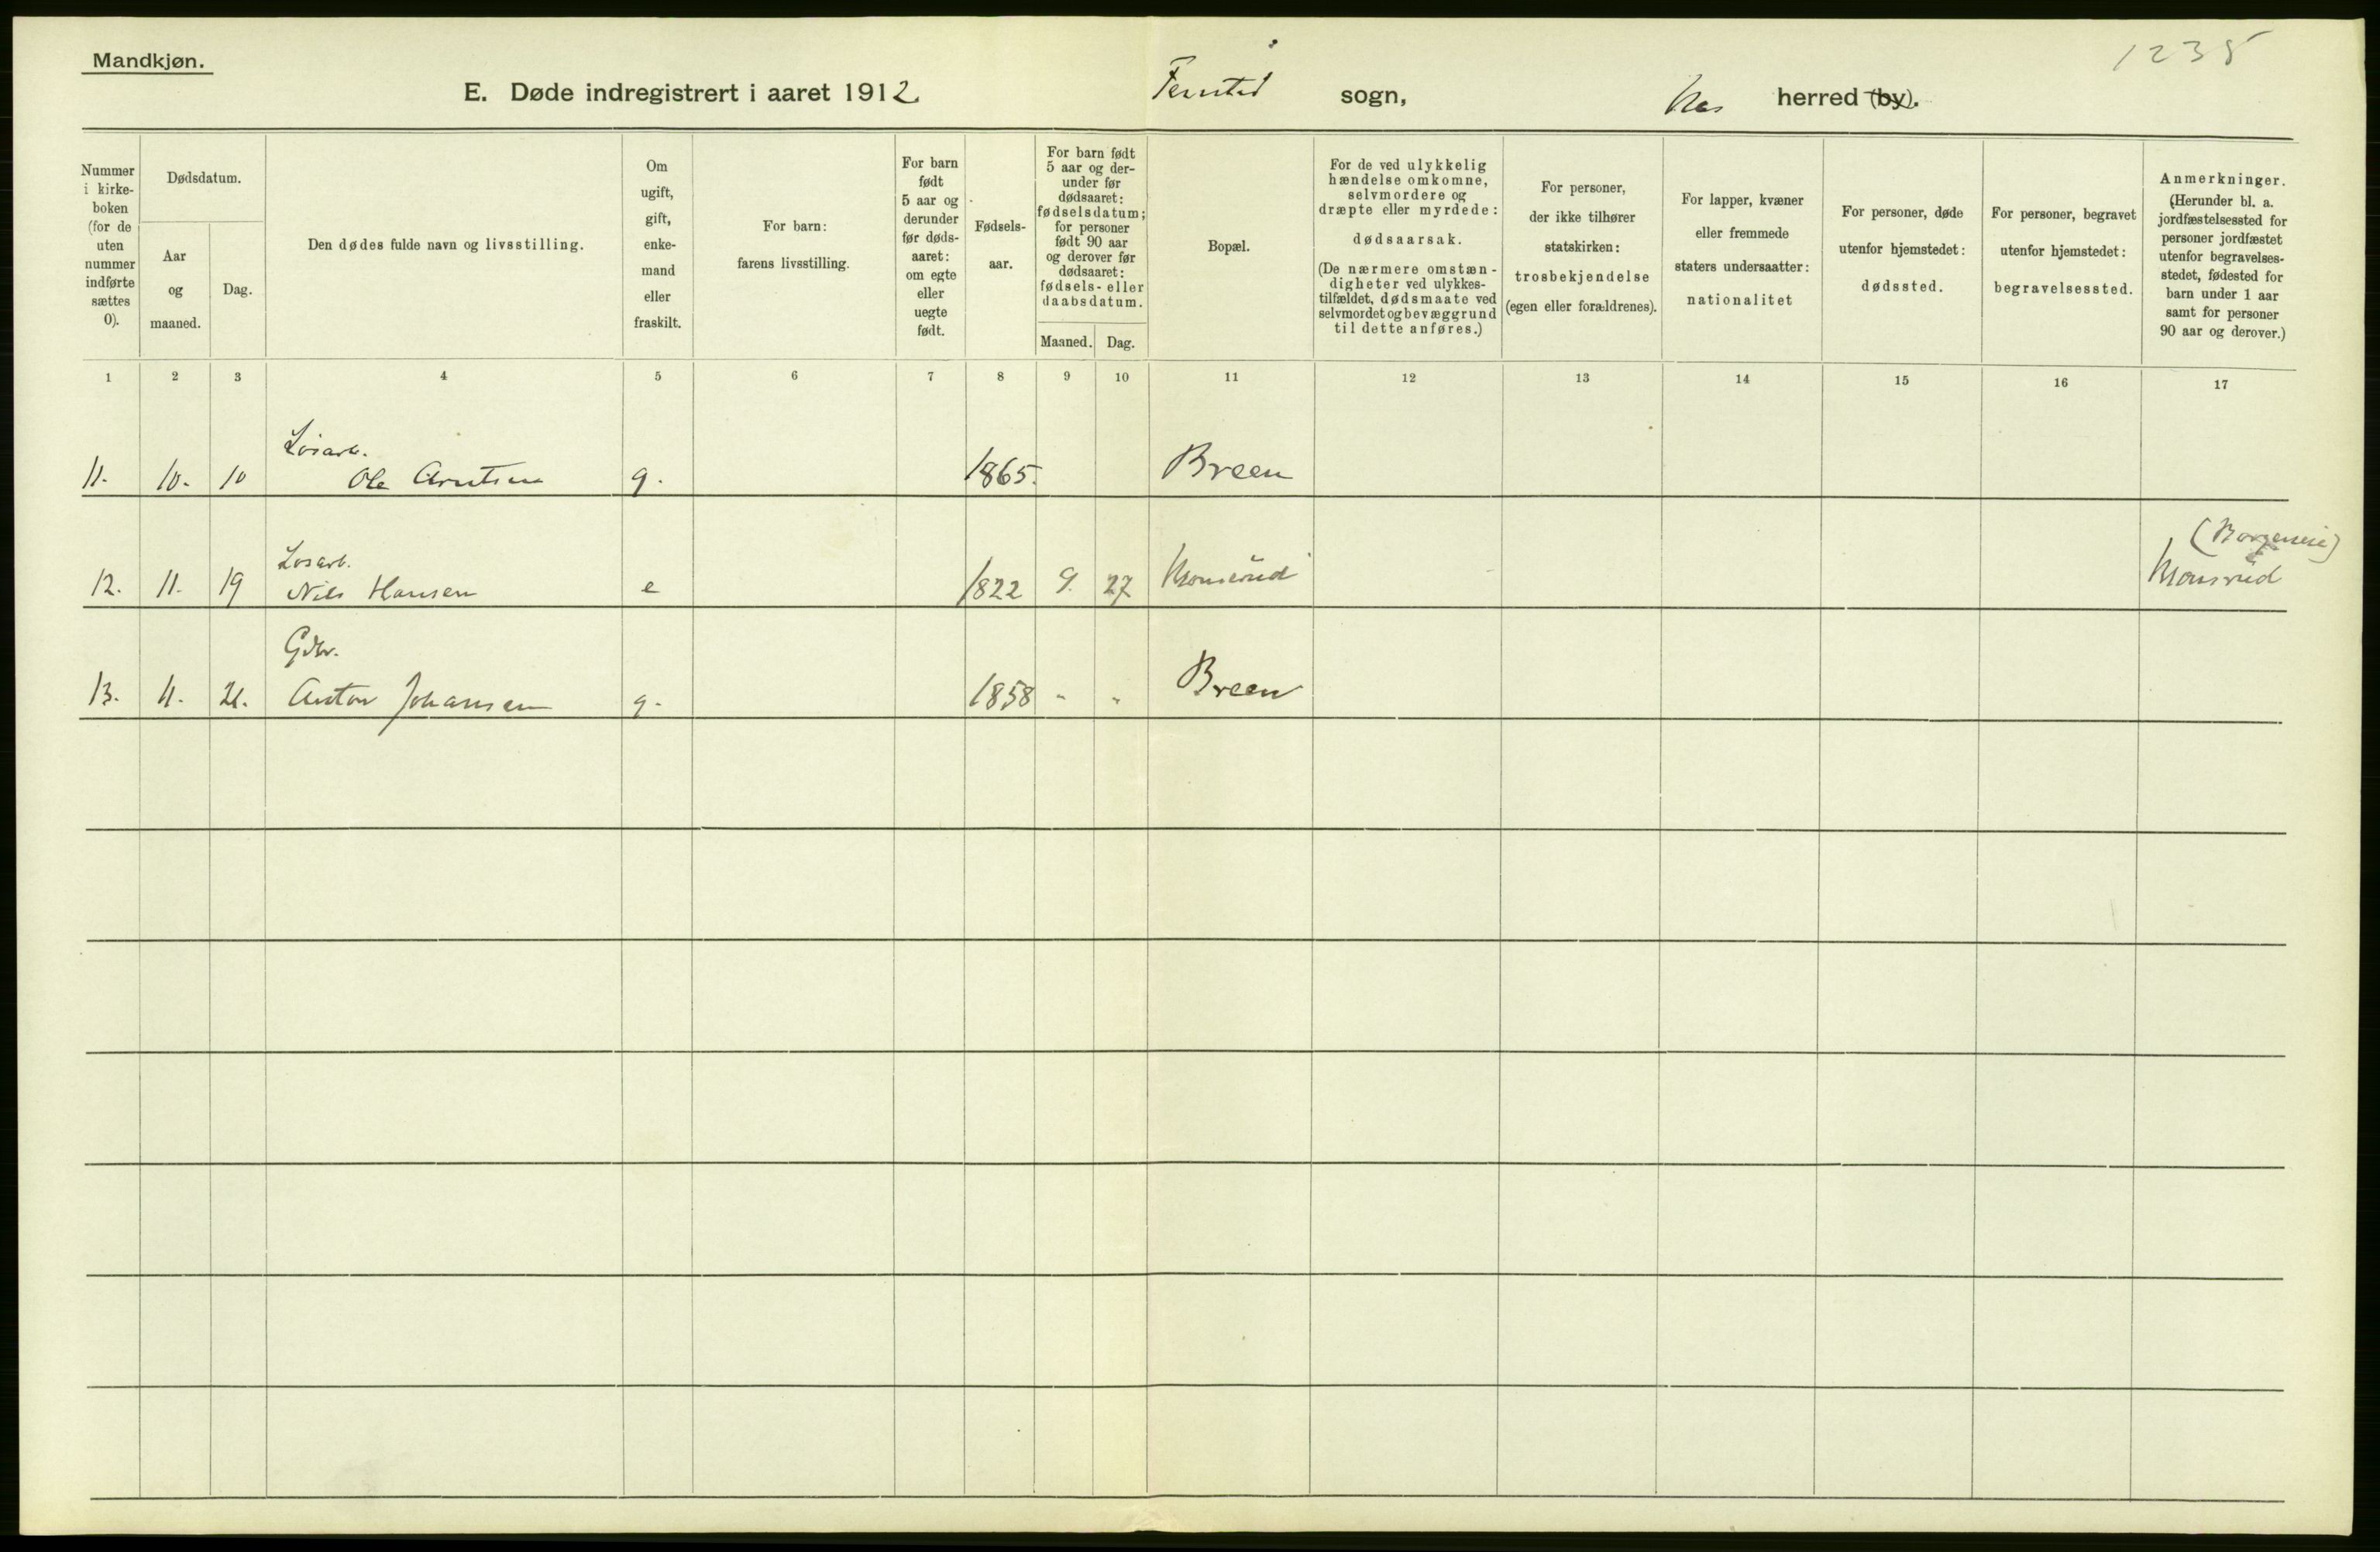 Mandkjøn.
1235
E. Døde indregistrert i aaret 1912. Fensted sogn, Nes herred (by).
Nummer i kirke-boken (for de uten nummer indførte sættes 0).
Dødsdatum.
Aar og maaned.
Dag.
Den dødes fulde navn og livsstilling.
Om ugift, gift, enke-mand eller fraskilt.
For barn: farens livsstilling.
For barn født 5 aar og derunder før døds-aaret: om egte eller uegte født.
Fødsels-aar.
For barn født 5 aar og der-under før dødsaaret: fødselsdatum; for personer født 90 aar og derover før dødsaaret: fødsels- eller daabsdatum.
Maaned.
Dag.
Bopæl.
For de ved ulykkelig hændelse omkomne, selvmordere og dræpte eller myrdede: dødsaarsak. (De nærmere omstæn-digheter ved ulykkes-tilfældet, dødsmaate ved selvmordet og bevæggrund til dette anføres.)
For personer, der ikke tilhører statskirken: trosbekjendelse (egen eller forældrenes).
For lapper, kvæner eller fremmede staters undersaatter: nationalitet
For personer, døde utenfor hjemstedet: dødssted.
For personer, begravet utenfor hjemstedet: begravelsessted.
Anmerkninger. (Herunder bl. a. jordfæstelsessted for personer jordfæstet utenfor begravelses-stedet, fødested for barn under 1 aar samt for personer 90 aar og derover.)
1 2 3 4 5 6 7 8 9 10 11 12 13 14 15 16 17
Løsarb.
11. 10. 10 Ole Arntsen g. 1865. Breen
Løsarb. (Borgeneie)
12. 11. 19 Nils Hansen e 1822 9. 27 Monsrud Monsrud
Gdbr.
13. 11. 21. Anton Johansen g. 1858 - - Breen